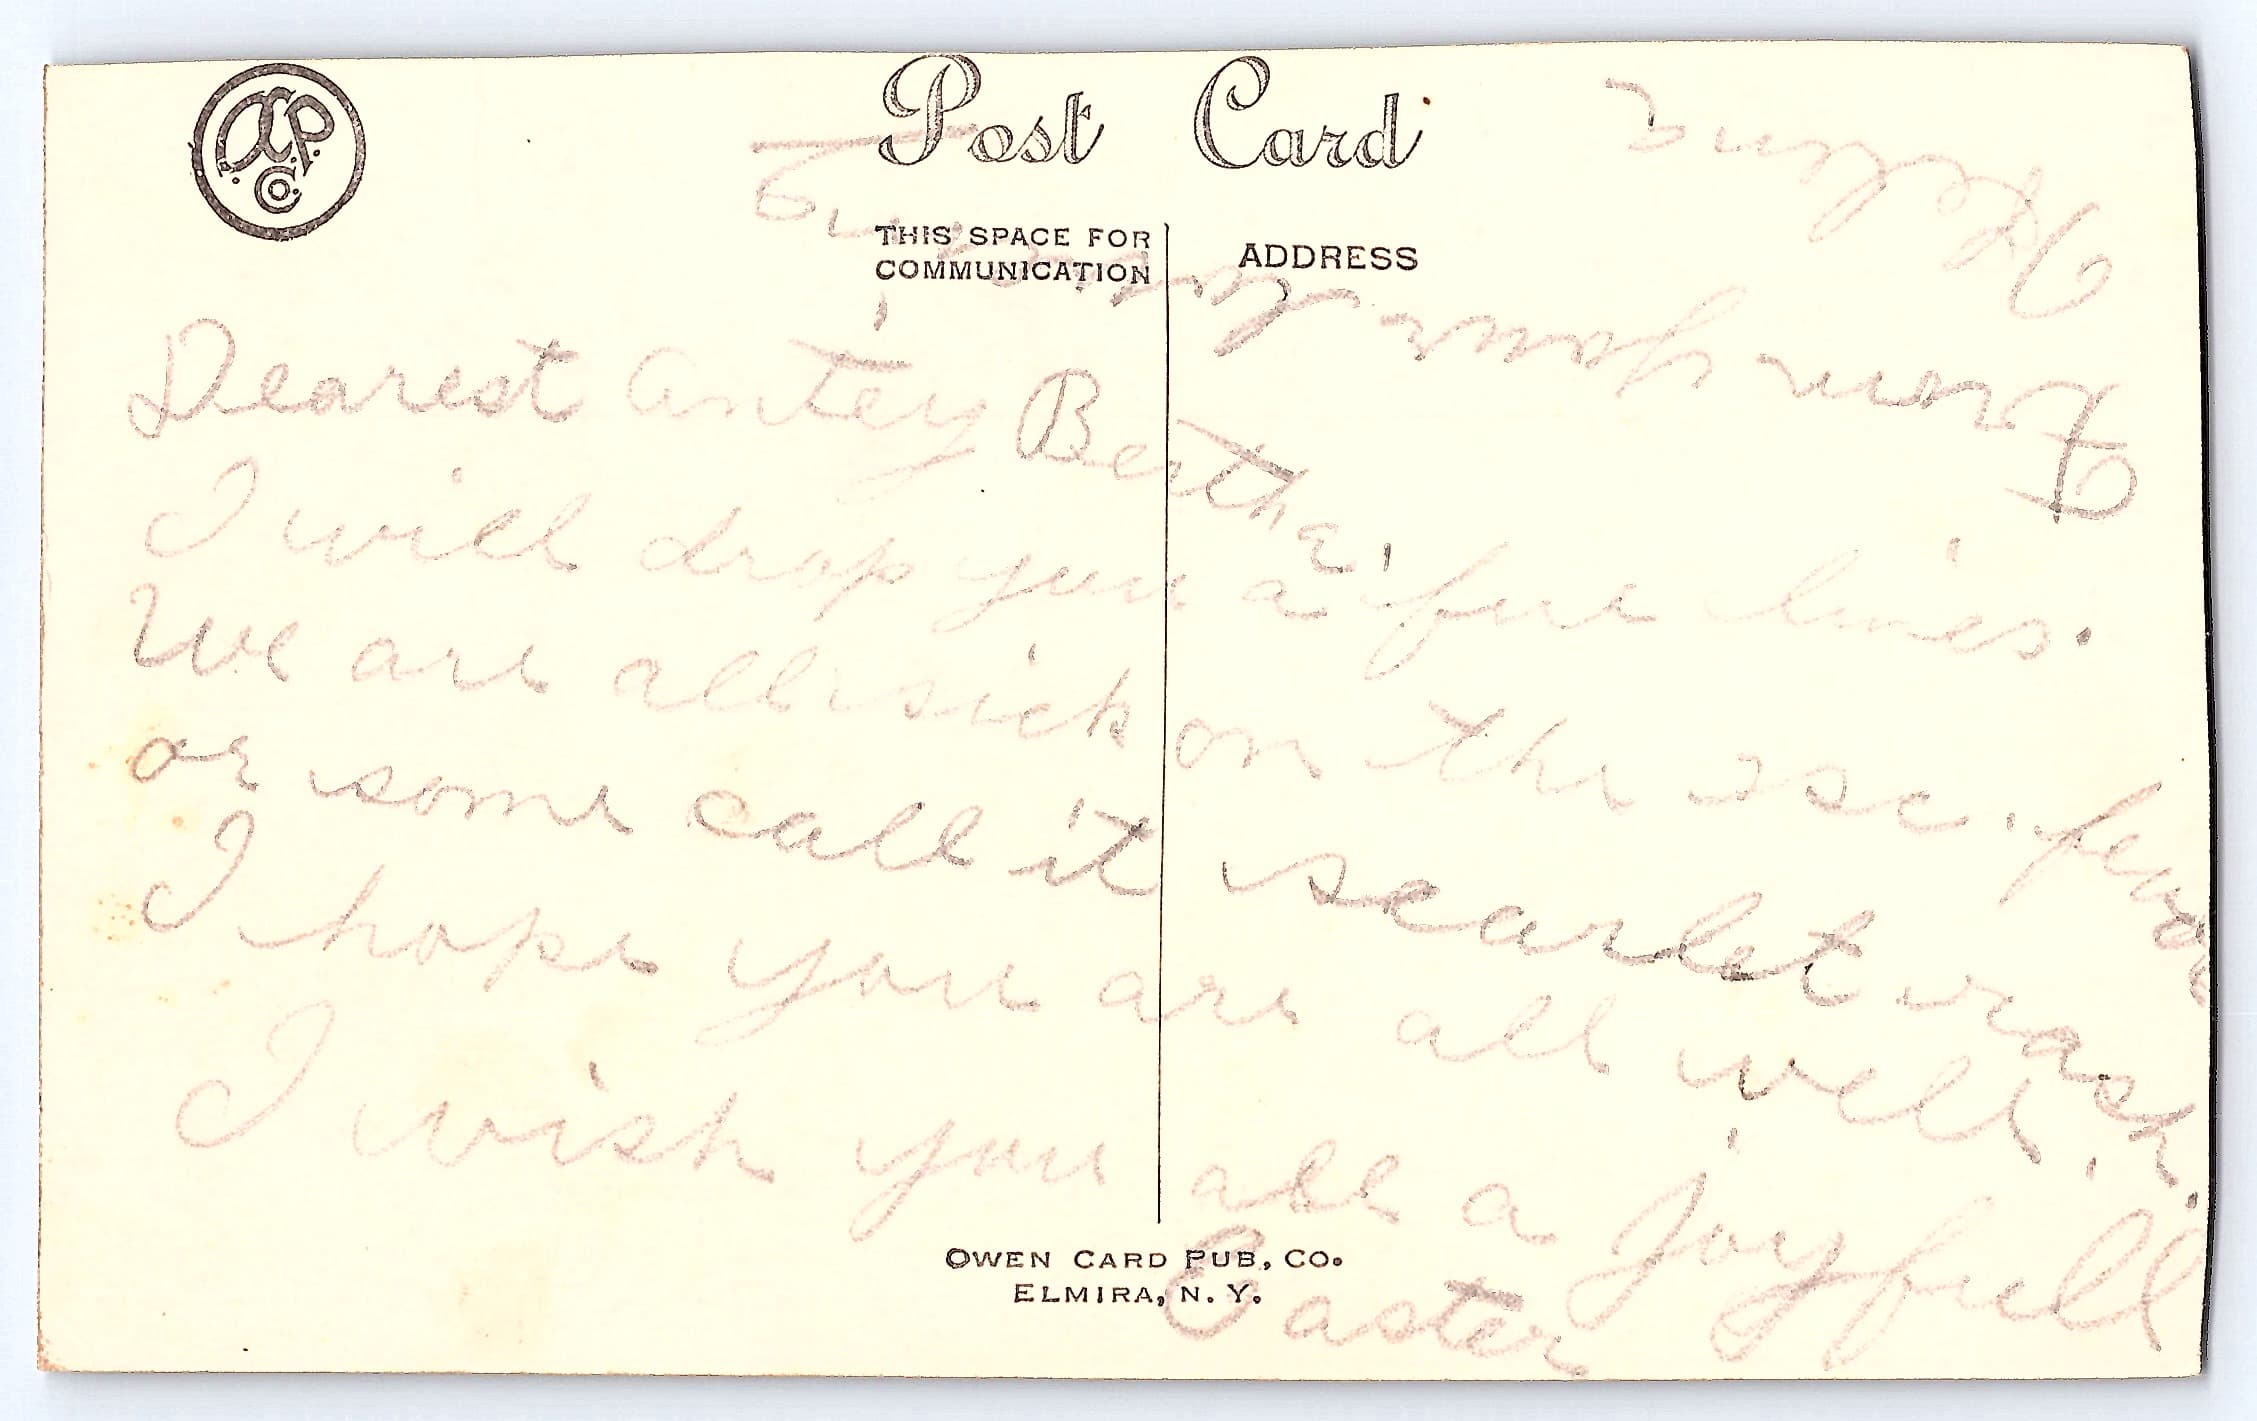 Post Card
THIS SPACE FOR
COMMUNICATION
ADDRESS
Dearest Antey Bertha,
I will drop you a fue lines.
We are all sick on the sc. fever
or some call it scarlet rash.
I hope you are all well.
I wish you all a joyfull
Easter
From your
OWEN CARD PUB. CO.
ELMIRA, N. Y.